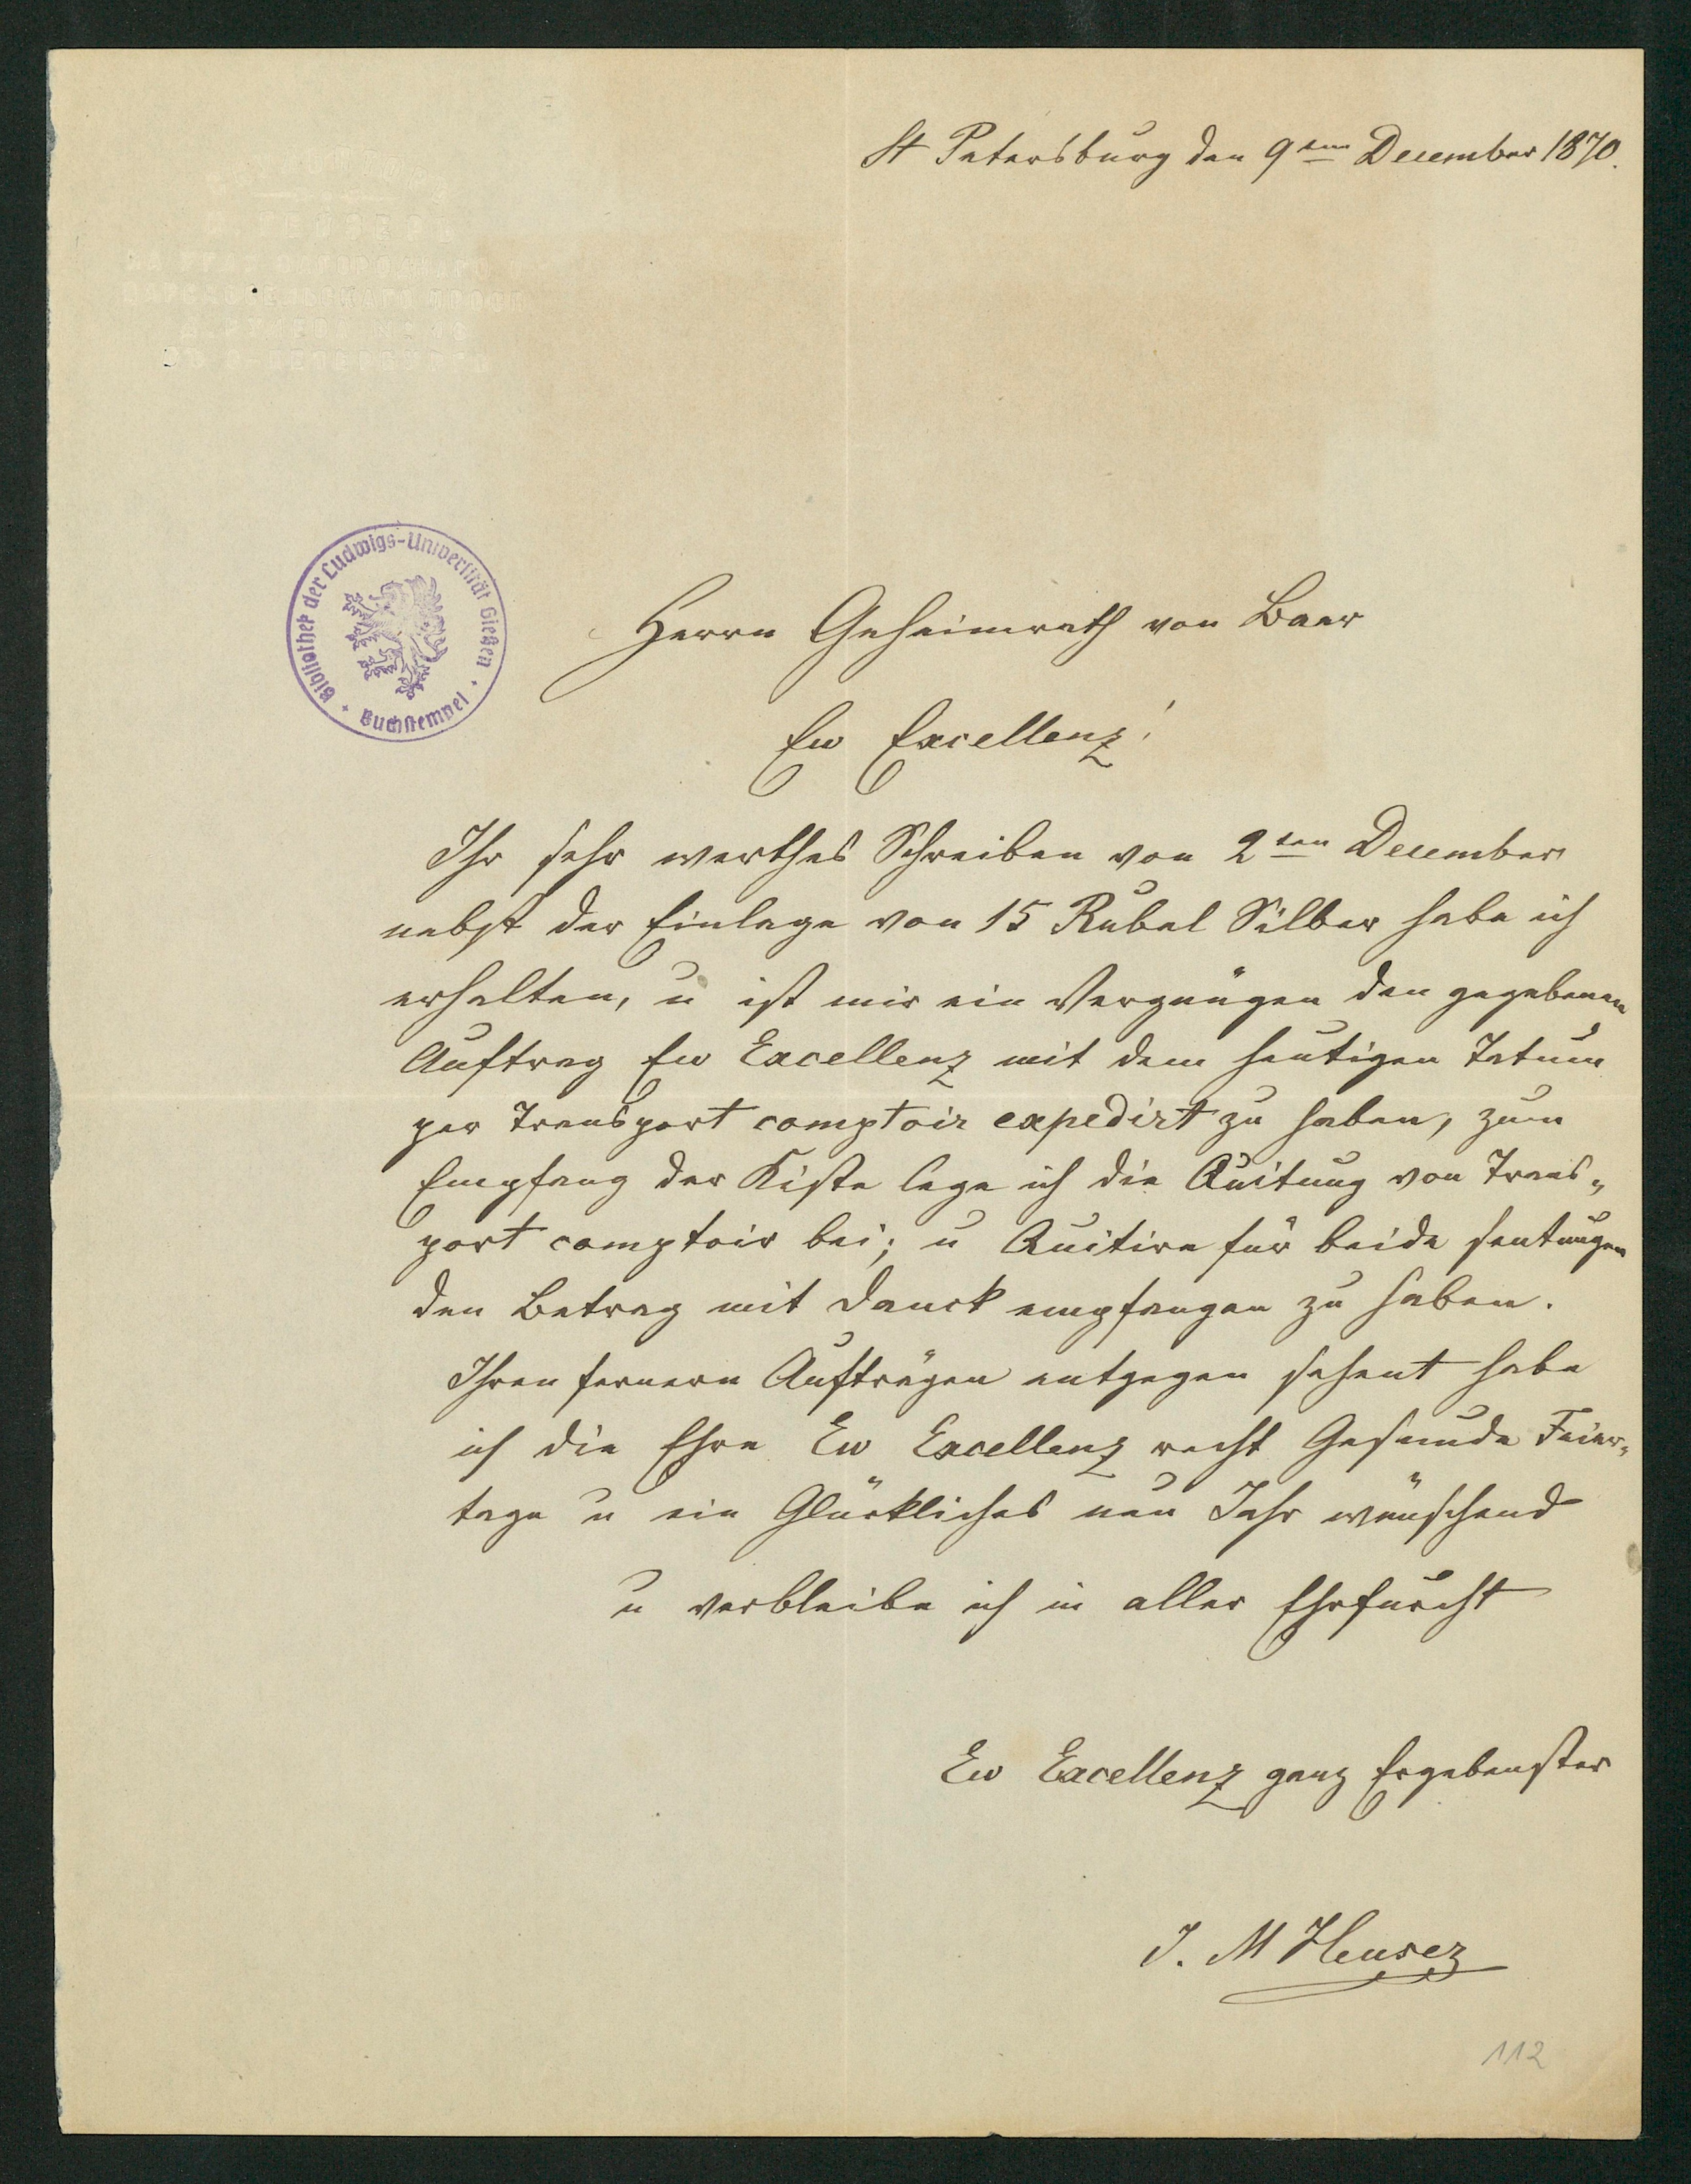 St Petersburg den 9ten December 1870.
Bibliothek der Ludwigs-Universität Gießen
Buchstempel
Herrn Geheimrath von Baer
Ew Excellenz!
Ihr sehr werthes Schreiben von 2ten December
nebst der Einlage von 15 Rubel Silber habe ich
erhalten, u ist mir ein Vergnügen den gegebenen
Auftrag Ew Excellenz mit dem heutigen Tatum
per Transport comptoir expedirt zu haben, zum
Empfang der Kiste lege ich die Quitung von Trans„
port comptoir bei; u Quitire für beide sentungen
den Betrag mit Danck empfangen zu haben.
Ihren fernern Aufträgen entgegen sehent habe
ich die Ehre Ew Excellenz recht Gesunde Feier„
tage u ein Glückliches neu Jahr wünschend
u verbleibe ich in aller Ehrfurcht
Ew Excellenz ganz Ergebenster
J. M Heuser
112